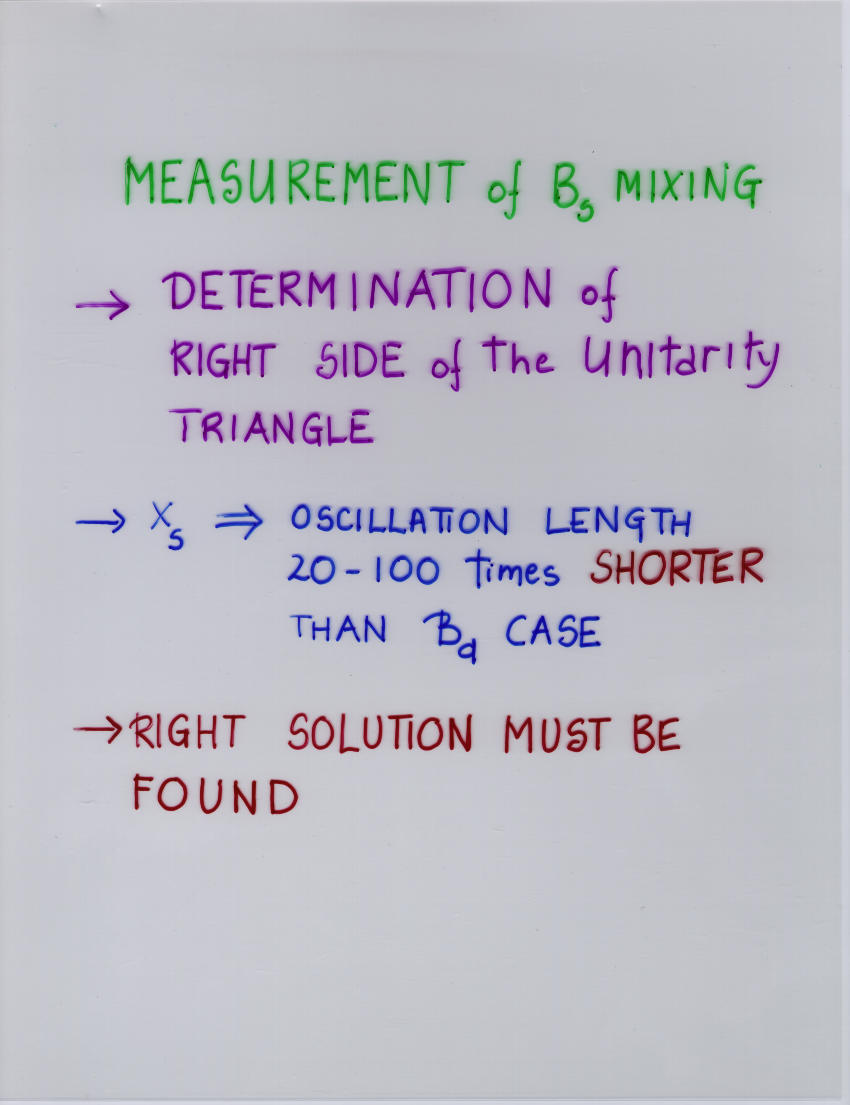 MEASUREMENT of Bₛ MIXING
→ DETERMINATION of
RIGHT SIDE of the Unitarity
TRIANGLE
→ Xₛ ⇒ OSCILLATION LENGTH
20-100 times SHORTER
THAN B_d CASE
→ RIGHT SOLUTION MUST BE
FOUND